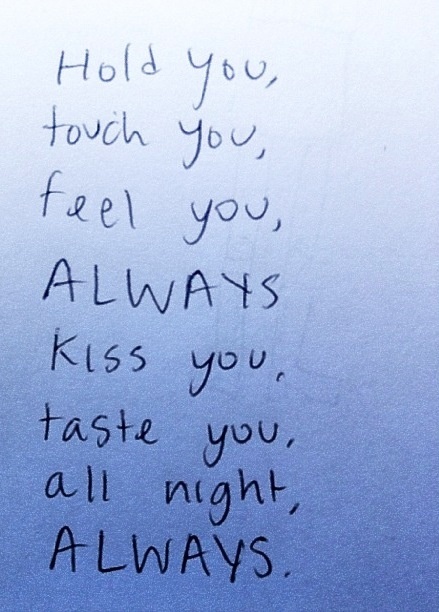 Hold you,
touch you,
feel you,
ALWAYS
Kiss you,
taste you,
all night,
ALWAYS.